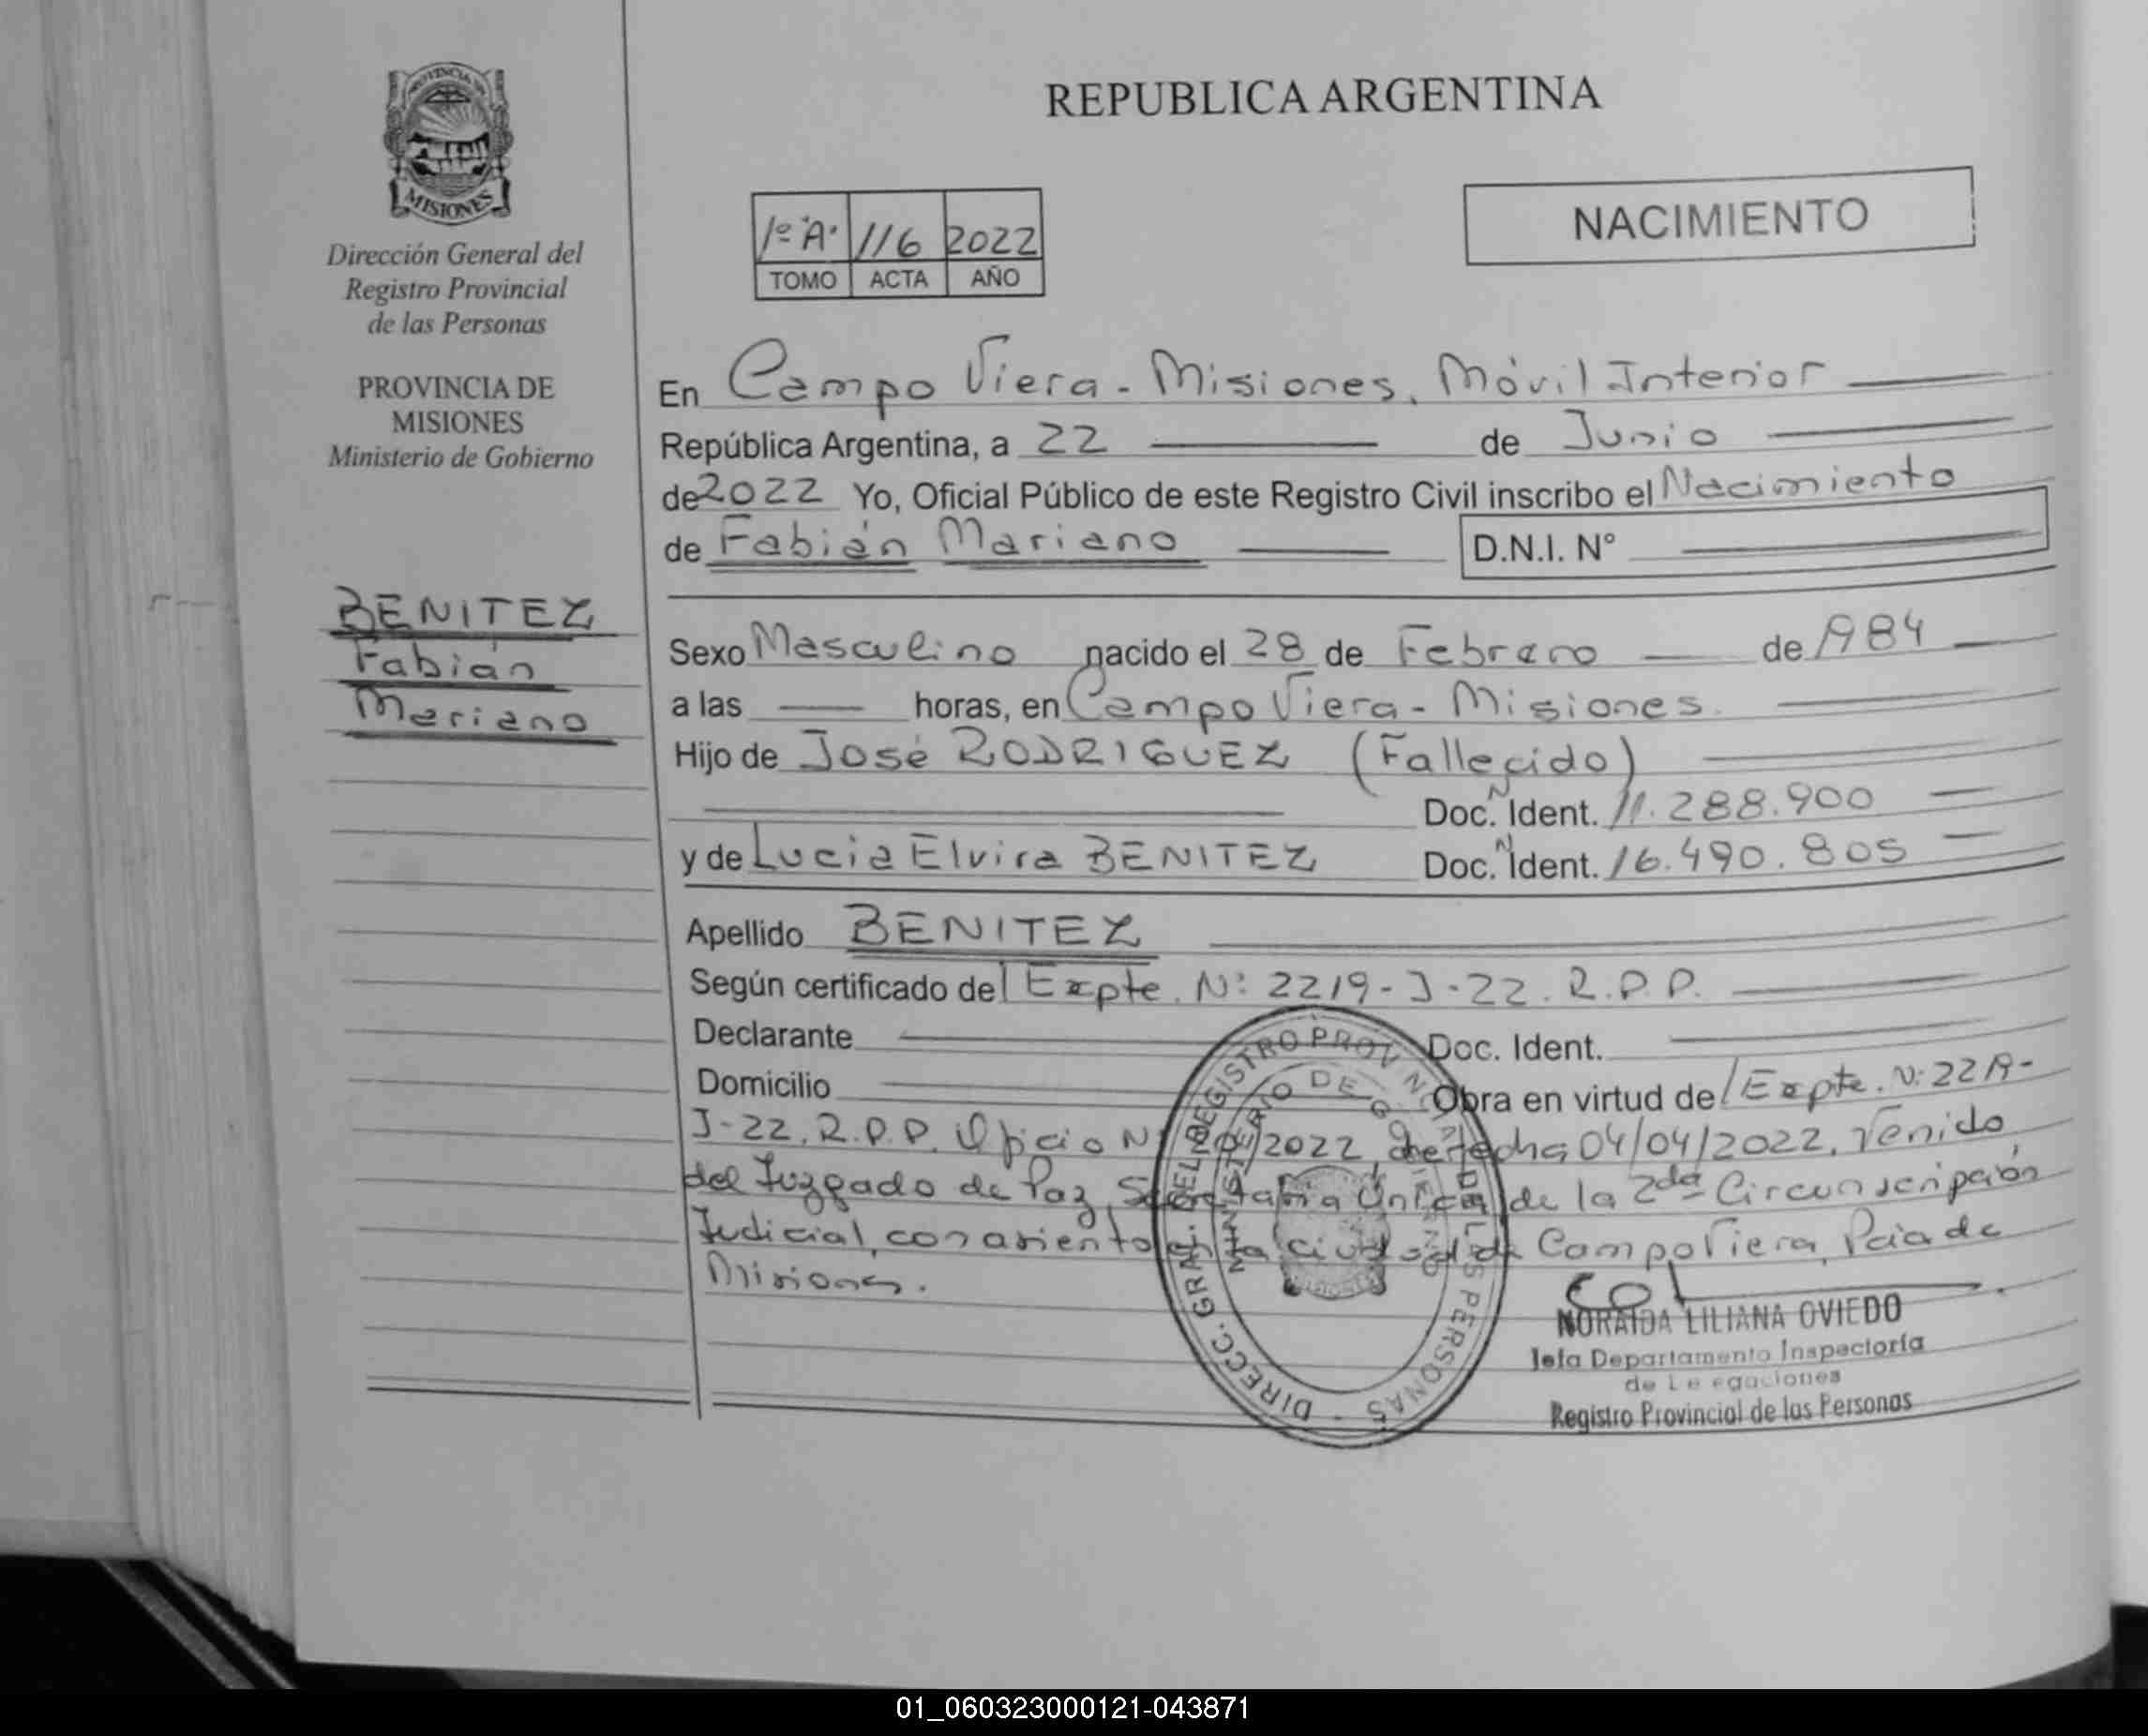 REPUBLICA ARGENTINA
PROVINCIA DE
MISIONES
Dirección General del
Registro Provincial
de las Personas
PROVINCIA DE
MISIONES
Ministerio de Gobierno
BENITEZ
Fabián
Mariano
1º "A" 116 2022
TOMO ACTA AÑO
NACIMIENTO
En Campo Viera - Misiones, Móvil Interior
República Argentina, a 22 de Junio
de 2022 Yo, Oficial Público de este Registro Civil inscribo el Nacimiento
de Fabián Mariano D.N.I. N°
Sexo Masculino nacido el 28 de Febrero de 1984
a las horas, en Campo Viera - Misiones.
Hijo de José RODRIGUEZ (Fallecido)
Doc. N Ident. 11.288.900
y de Lucia Elvira BENITEZ Doc. N Ident. 16.490.805
Apellido BENITEZ
Según certificado del Expte. Nº 2219-J-22. R.P.P.
Declarante Doc. Ident.
Domicilio Obra en virtud del Expte. Nº 2219-
J-22. R.P.P. Oficio Nº /2022, de fecha 04/04/2022, Venido
del Juzgado de Paz, Secretaría Única, de la 2da Circunscripción
Judicial, con asiento en la ciudad de Campo Viera, Pcia de
Misiones.
DIRECC. GRAL. DEL REGISTRO PROVINCIAL DE LAS PERSONAS
MINISTERIO DE GOBIERNO
NORAIDA LILIANA OVIEDO
Jefa Departamento Inspectoría
de
Registro Provincial de las Personas
01_060323000121-043871